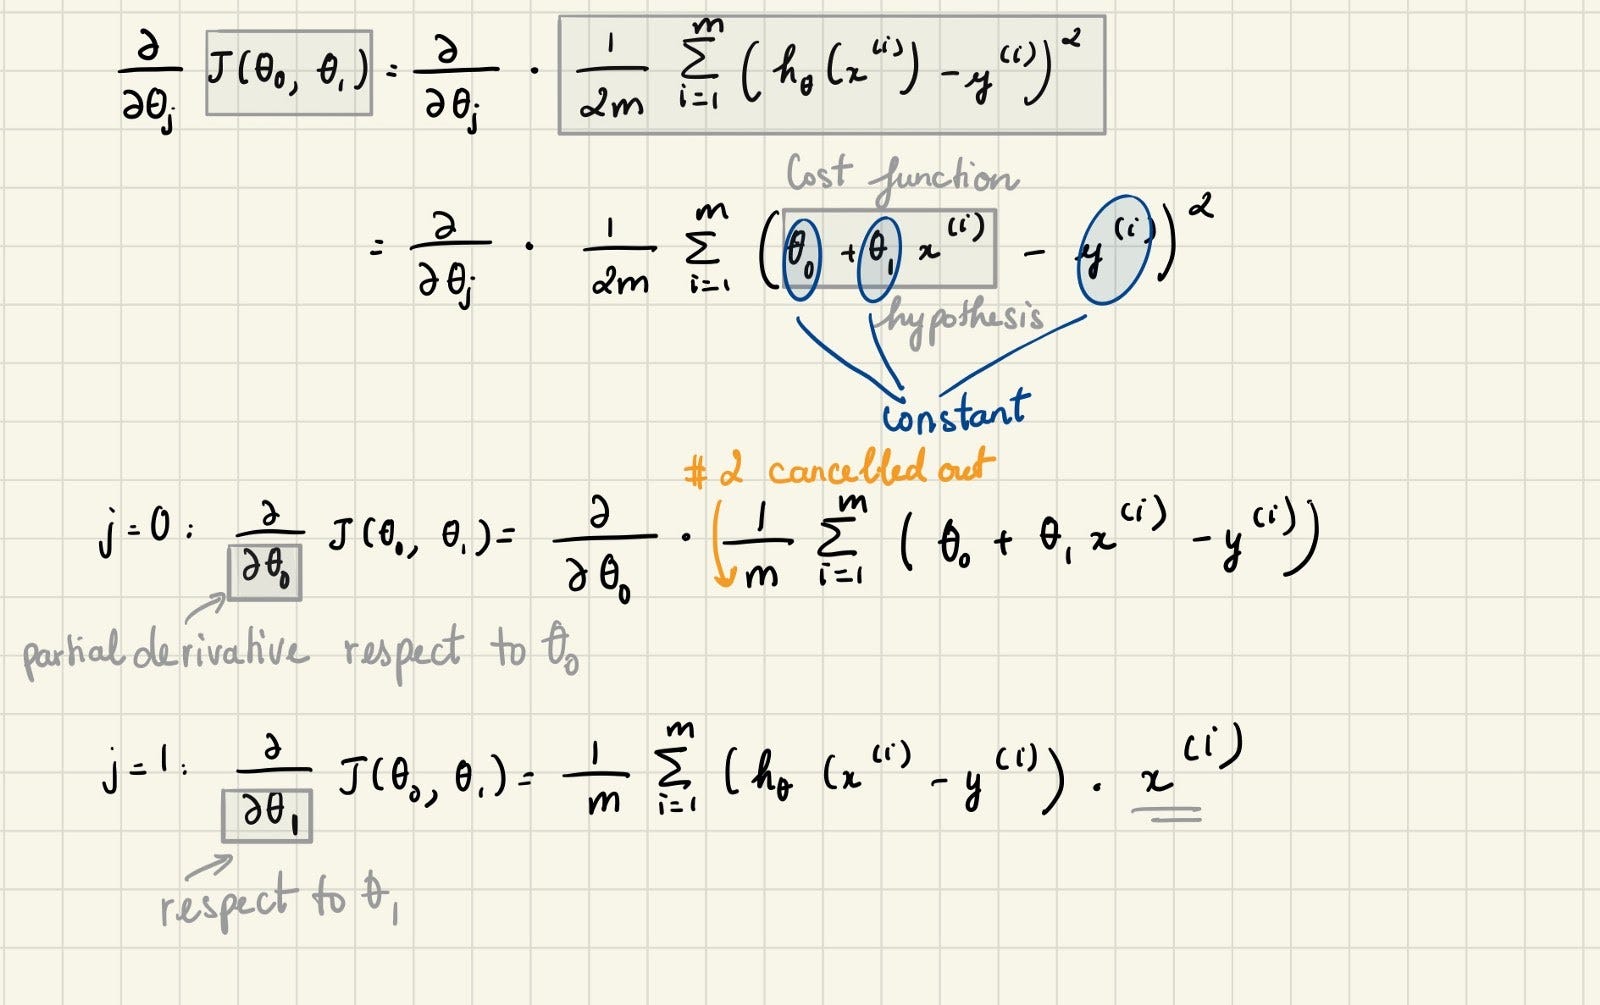 ∂/∂θj J(θ0, θ1) = ∂/∂θj · 1/2m Σ_{i=1}^{m} (hθ(x^(i)) - y^(i))^2
Cost function
= ∂/∂θj · 1/2m Σ_{i=1}^{m} (θ0 + θ1 x^(i) - y^(i))^2
hypothesis
constant
# 2 cancelled out
j=0: ∂/∂θ0 J(θ0, θ1) = ∂/∂θ0 · 1/m Σ_{i=1}^{m} (θ0 + θ1 x^(i) - y^(i))
partial derivative respect to θ0
j=1: ∂/∂θ1 J(θ0, θ1) = 1/m Σ_{i=1}^{m} (hθ (x^(i) - y^(i)) · x^(i)
respect to θ1